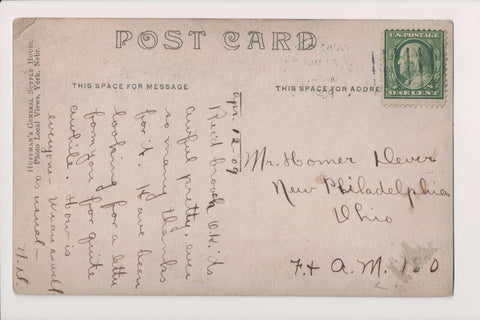 POST CARD
THIS SPACE FOR MESSAGE
THIS SPACE FOR ADDRE
U.S. POSTAGE
ONE CENT
HUFFMAN'S GENERAL SUPPLY HOUSE,
Photo Local Views, York, Nebr.
Apr. 12-09
Rec'd O.K. its
awful pretty, ever
so many thanks
for it. Have been
looking for a letter
from you for quite
awhile. How is
everyone - We are well
as usual -
Mr. Homer Dever
New Philadelphia
Ohio
F. & A. M. 180